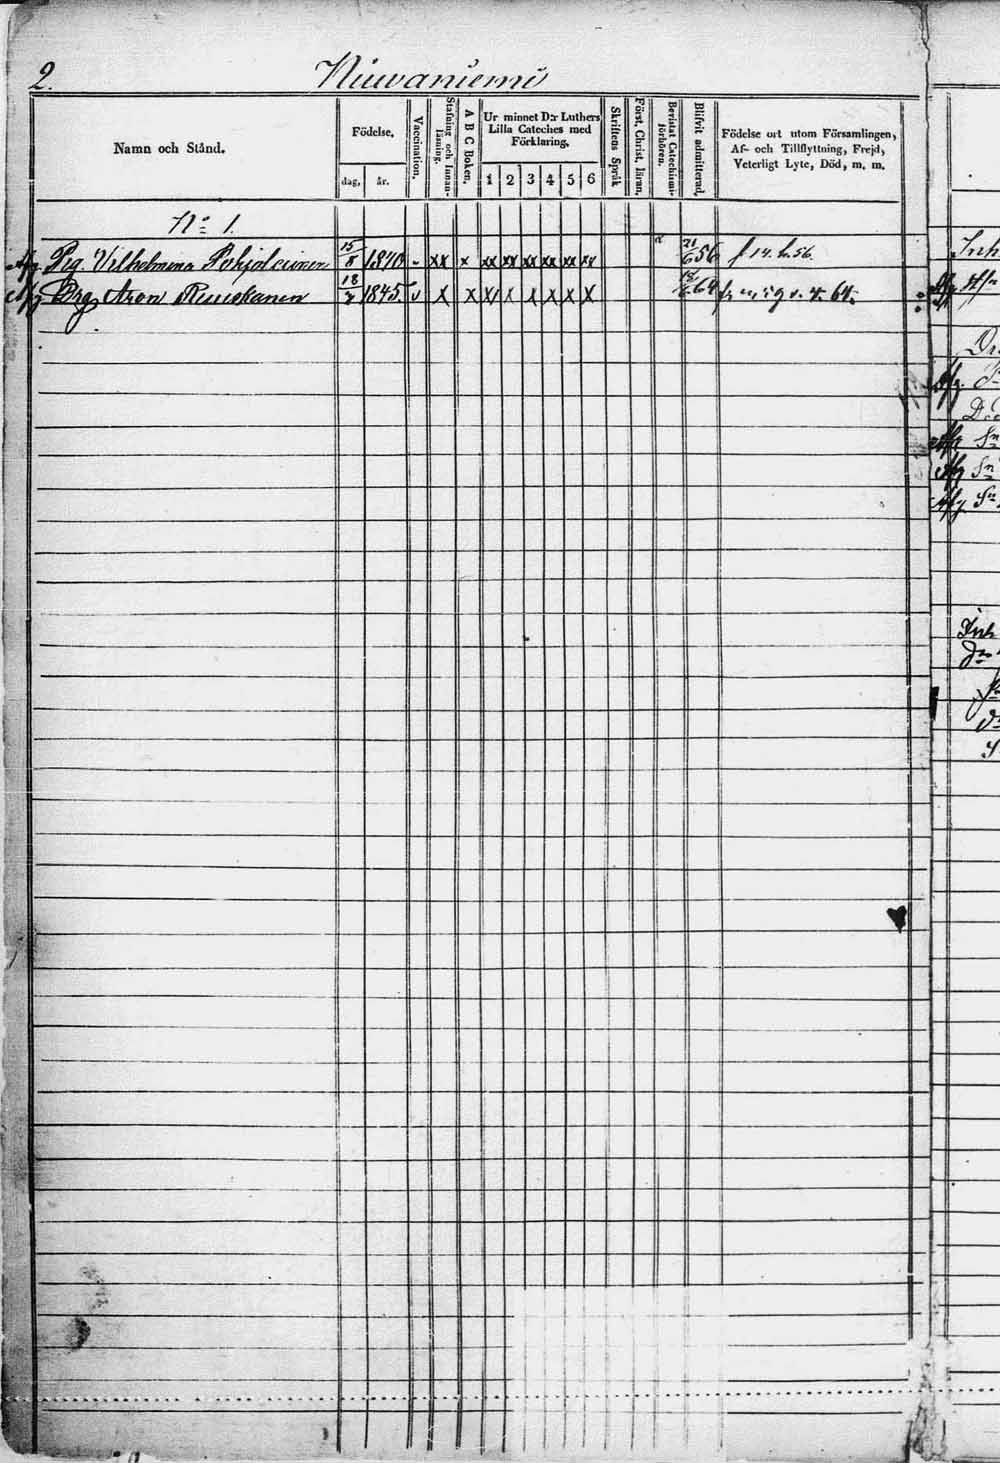 2. Niuvaniemi
Namn och Stånd.
Födelse,
dag,
år.
Vaccination.
Stafning och Innan-
läsning.
A B C Boken.
Ur minnet D:r Luthers
Lilla Cateches med
Förklaring,
1 2 3 4 5 6
Skriftens Språk
Först. Christ. läran.
Bevistat Catechismi-
förhören.
Blifvit admitterad.
Födelse ort utom Församlingen,
Af- och Tillflyttning, Frejd,
Veterligt Lyte, Död, m. m.
No 1.
Afg. Pig. Vilhelmina Pohjolainen 15/8 1840 - xx x xx xx xx xx xx xx 21/6 56 f 14. 56.
Afg Drg Aron 18/7 1845. v x x x x x x x x 64 64.
Inh
Afg
Afg.
Afg Sn
Afg Sn
Afg Sn
Inh